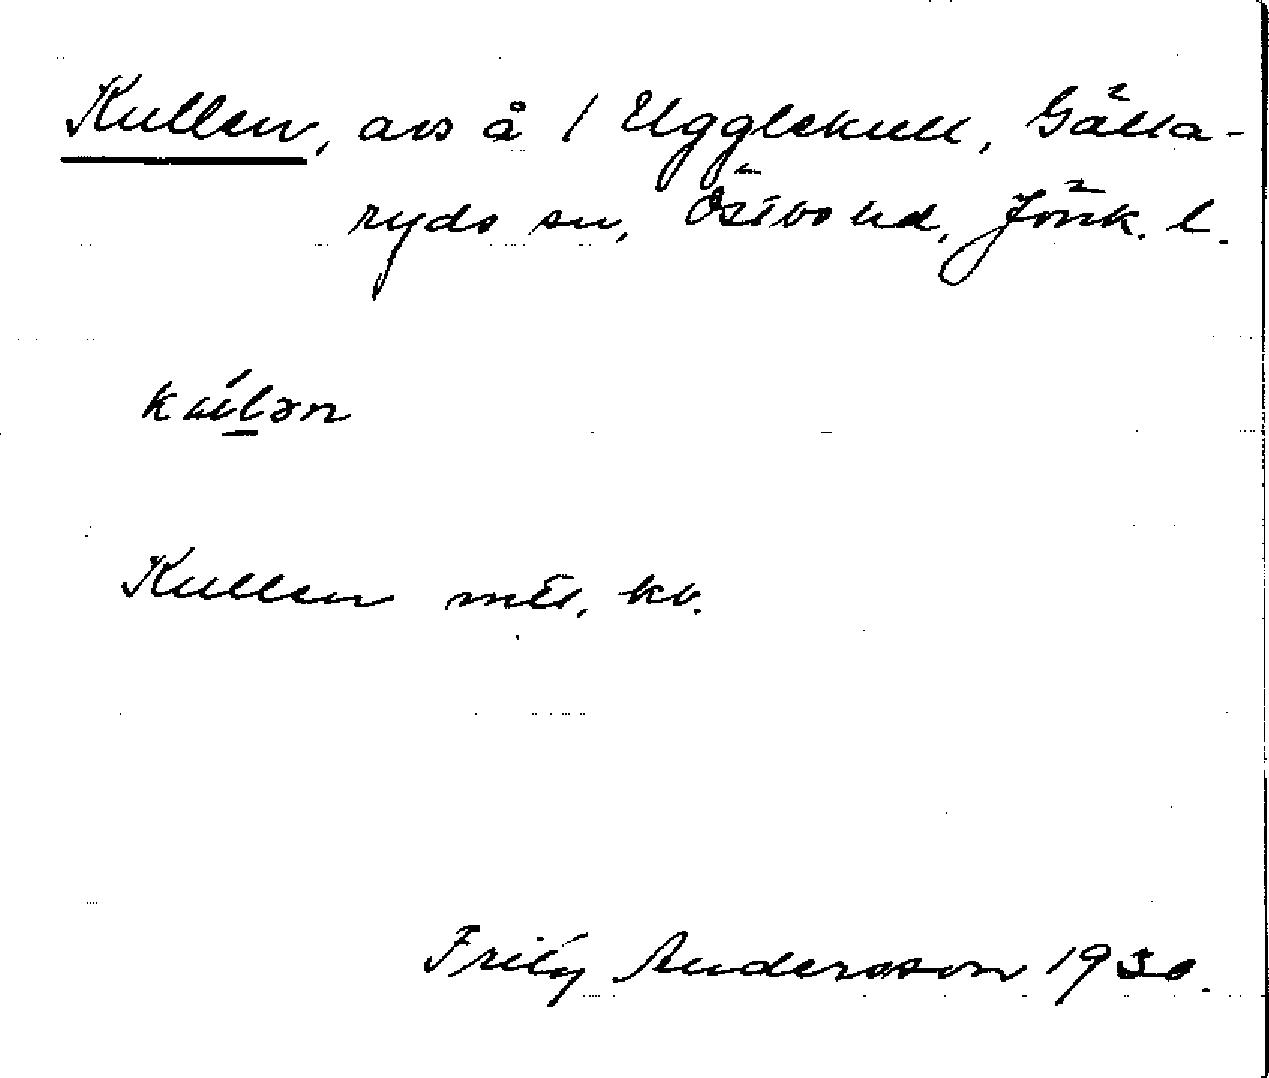 Kullen, avs å 1 Ugglekull, Gälla-
ryds sn, Östbo hd, Jönk. l.
kúlən
Kullen mtl, kv.
Andersson 1930.